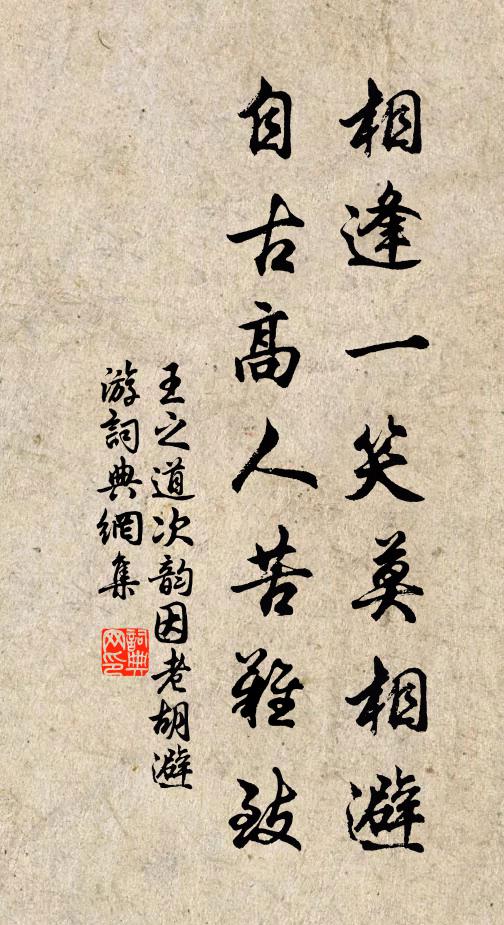 相逢一笑莫相澼
自古高人苦難致
王之道次韵因老胡澼
游詞典網集
詞典
网印